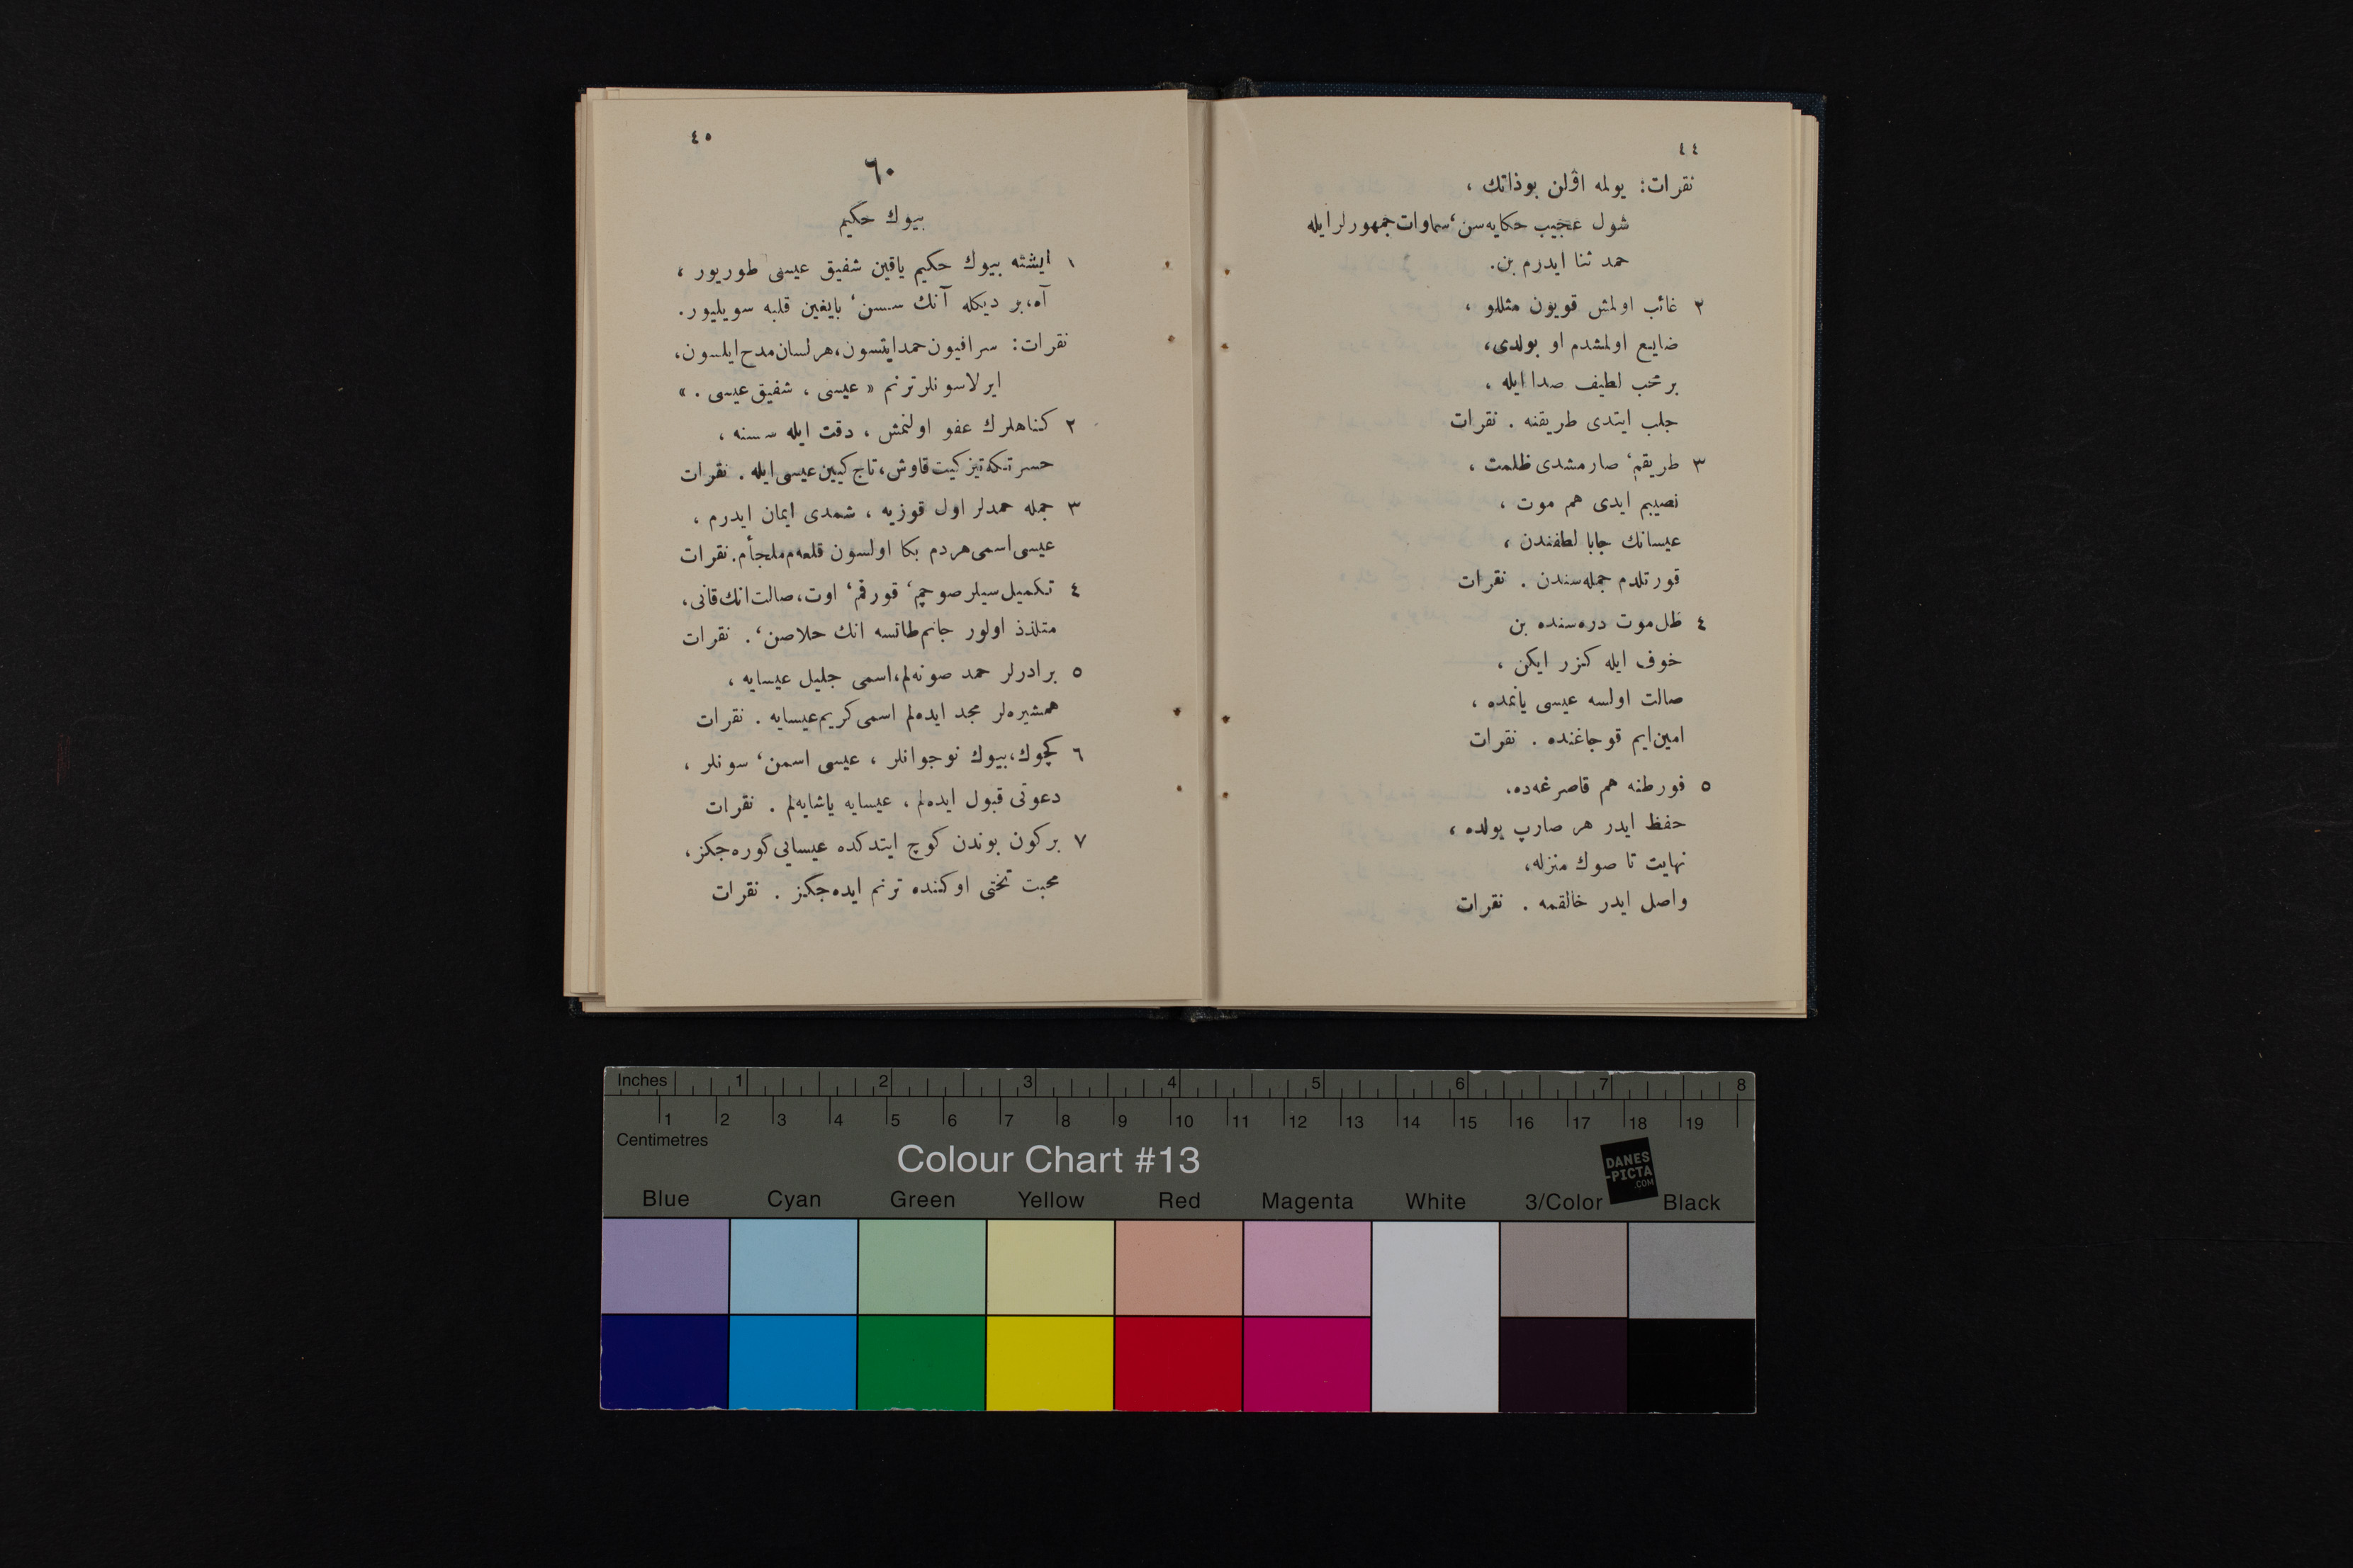 ٤٤
نقرات: يولمه اۋلن بوذاتك ،
شول عجيب حكايه‌سن، سماوات جمهورلر ايله
حمد ثنا ايدرم بن.
٢ غائب اولمش قويون مثللو ،
ضايع اولمشدم او بولدى،
بر محب لطيف صدا ايله ،
جلب ايتدى طريقنه . نقرات
٣ طريقم، صارمشدى ظلمت ،
نصيبم ايدى هم موت ،
عيسانك جابا لطفندن ،
قورتلدم جمله‌سندن . نقرات
٤ ظل موت دره‌سنده بن
خوف ايله كزر ايكن ،
صالت اولسه عيسى يانمده ،
امين‌ايم قوجاغنده . نقرات
٥ فورطنه هم قاصرغه‌ده،
حفظ ايدر هر صارپ يولده ،
نهايت تا صوك منزله،
واصل ايدر خالقمه . نقرات
٤٥
٦٠
بيوك حكيم
١ ايشته بيوك حكيم ياقين شفيق عيسى طوريور ،
آه، بر ديكله آنك سسن، بايغين قلبه سويليور.
نقرات: سرافيون حمد ايتسون، هر لسان مدح ايلسون،
ايرلاسونلر ترنم « عيسى ، شفيق عيسى . »
٢ كناهلرك عفو اولنمش ، دقت ايله سسنه ،
حسرتكه تيز كيت قاوش، تاج كيين عيسى ايله . نقرات
٣ جمله حمدلر اول قوزيه ، شمدى ايمان ايدرم ،
عيسى اسمى هردم بكا اولسون قلعه‌م ملجأم. نقرات
٤ تكميل سيلر صوچم، قورقم، اوت، صالت انك قانى،
متلذذ اولور جانم طاتسه انك حلاصن، . نقرات
٥ برادرلر حمد صونه‌لم، اسمى جليل عيسايه ،
همشيره‌لر مجد ايده‌لم اسمى كريم عيسايه . نقرات
٦ كچوك، بيوك نوجوانلر ، عيسى اسمن، سونلر ،
دعوتى قبول ايده‌لم ، عيسايه ياشايه‌لم . نقرات
٧ بركون بوندن كوچ ايتدكده عيسايى كوره‌جكز،
محبت تختى اوكنده ترنم ايده‌جكز . نقرات
Inches 1 2 3 4 5 6 7 8
1 2 3 4 5 6 7 8 9 10 11 12 13 14 15 16 17 18 19
Centimetres
Colour Chart #13
DANES
-PICTA
.COM
Blue Cyan Green Yellow Red Magenta White 3/Color Black